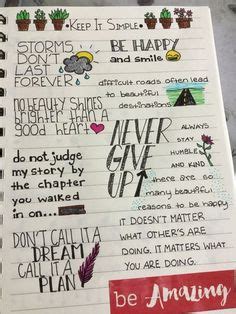 Keep It Simple
STORMS
DON'T
LAST
FOREVER
BE HAPPY
and smile
difficult roads often lead
to beautiful
destinations
no beauty shines
brighter than a
good heart
NEVER
GIVE
UP
ALWAYS
STAY
HUMBLE
AND KIND
do not judge
my story by
the chapter
you walked
in on...
there are so
many beautiful
reasons to be happy
DON'T CALL IT A
DREAM
CALL IT A
PLAN
IT DOESN'T MATTER
WHAT OTHER'S ARE
DOING. IT MATTERS WHAT
YOU ARE DOING.
be Amazing